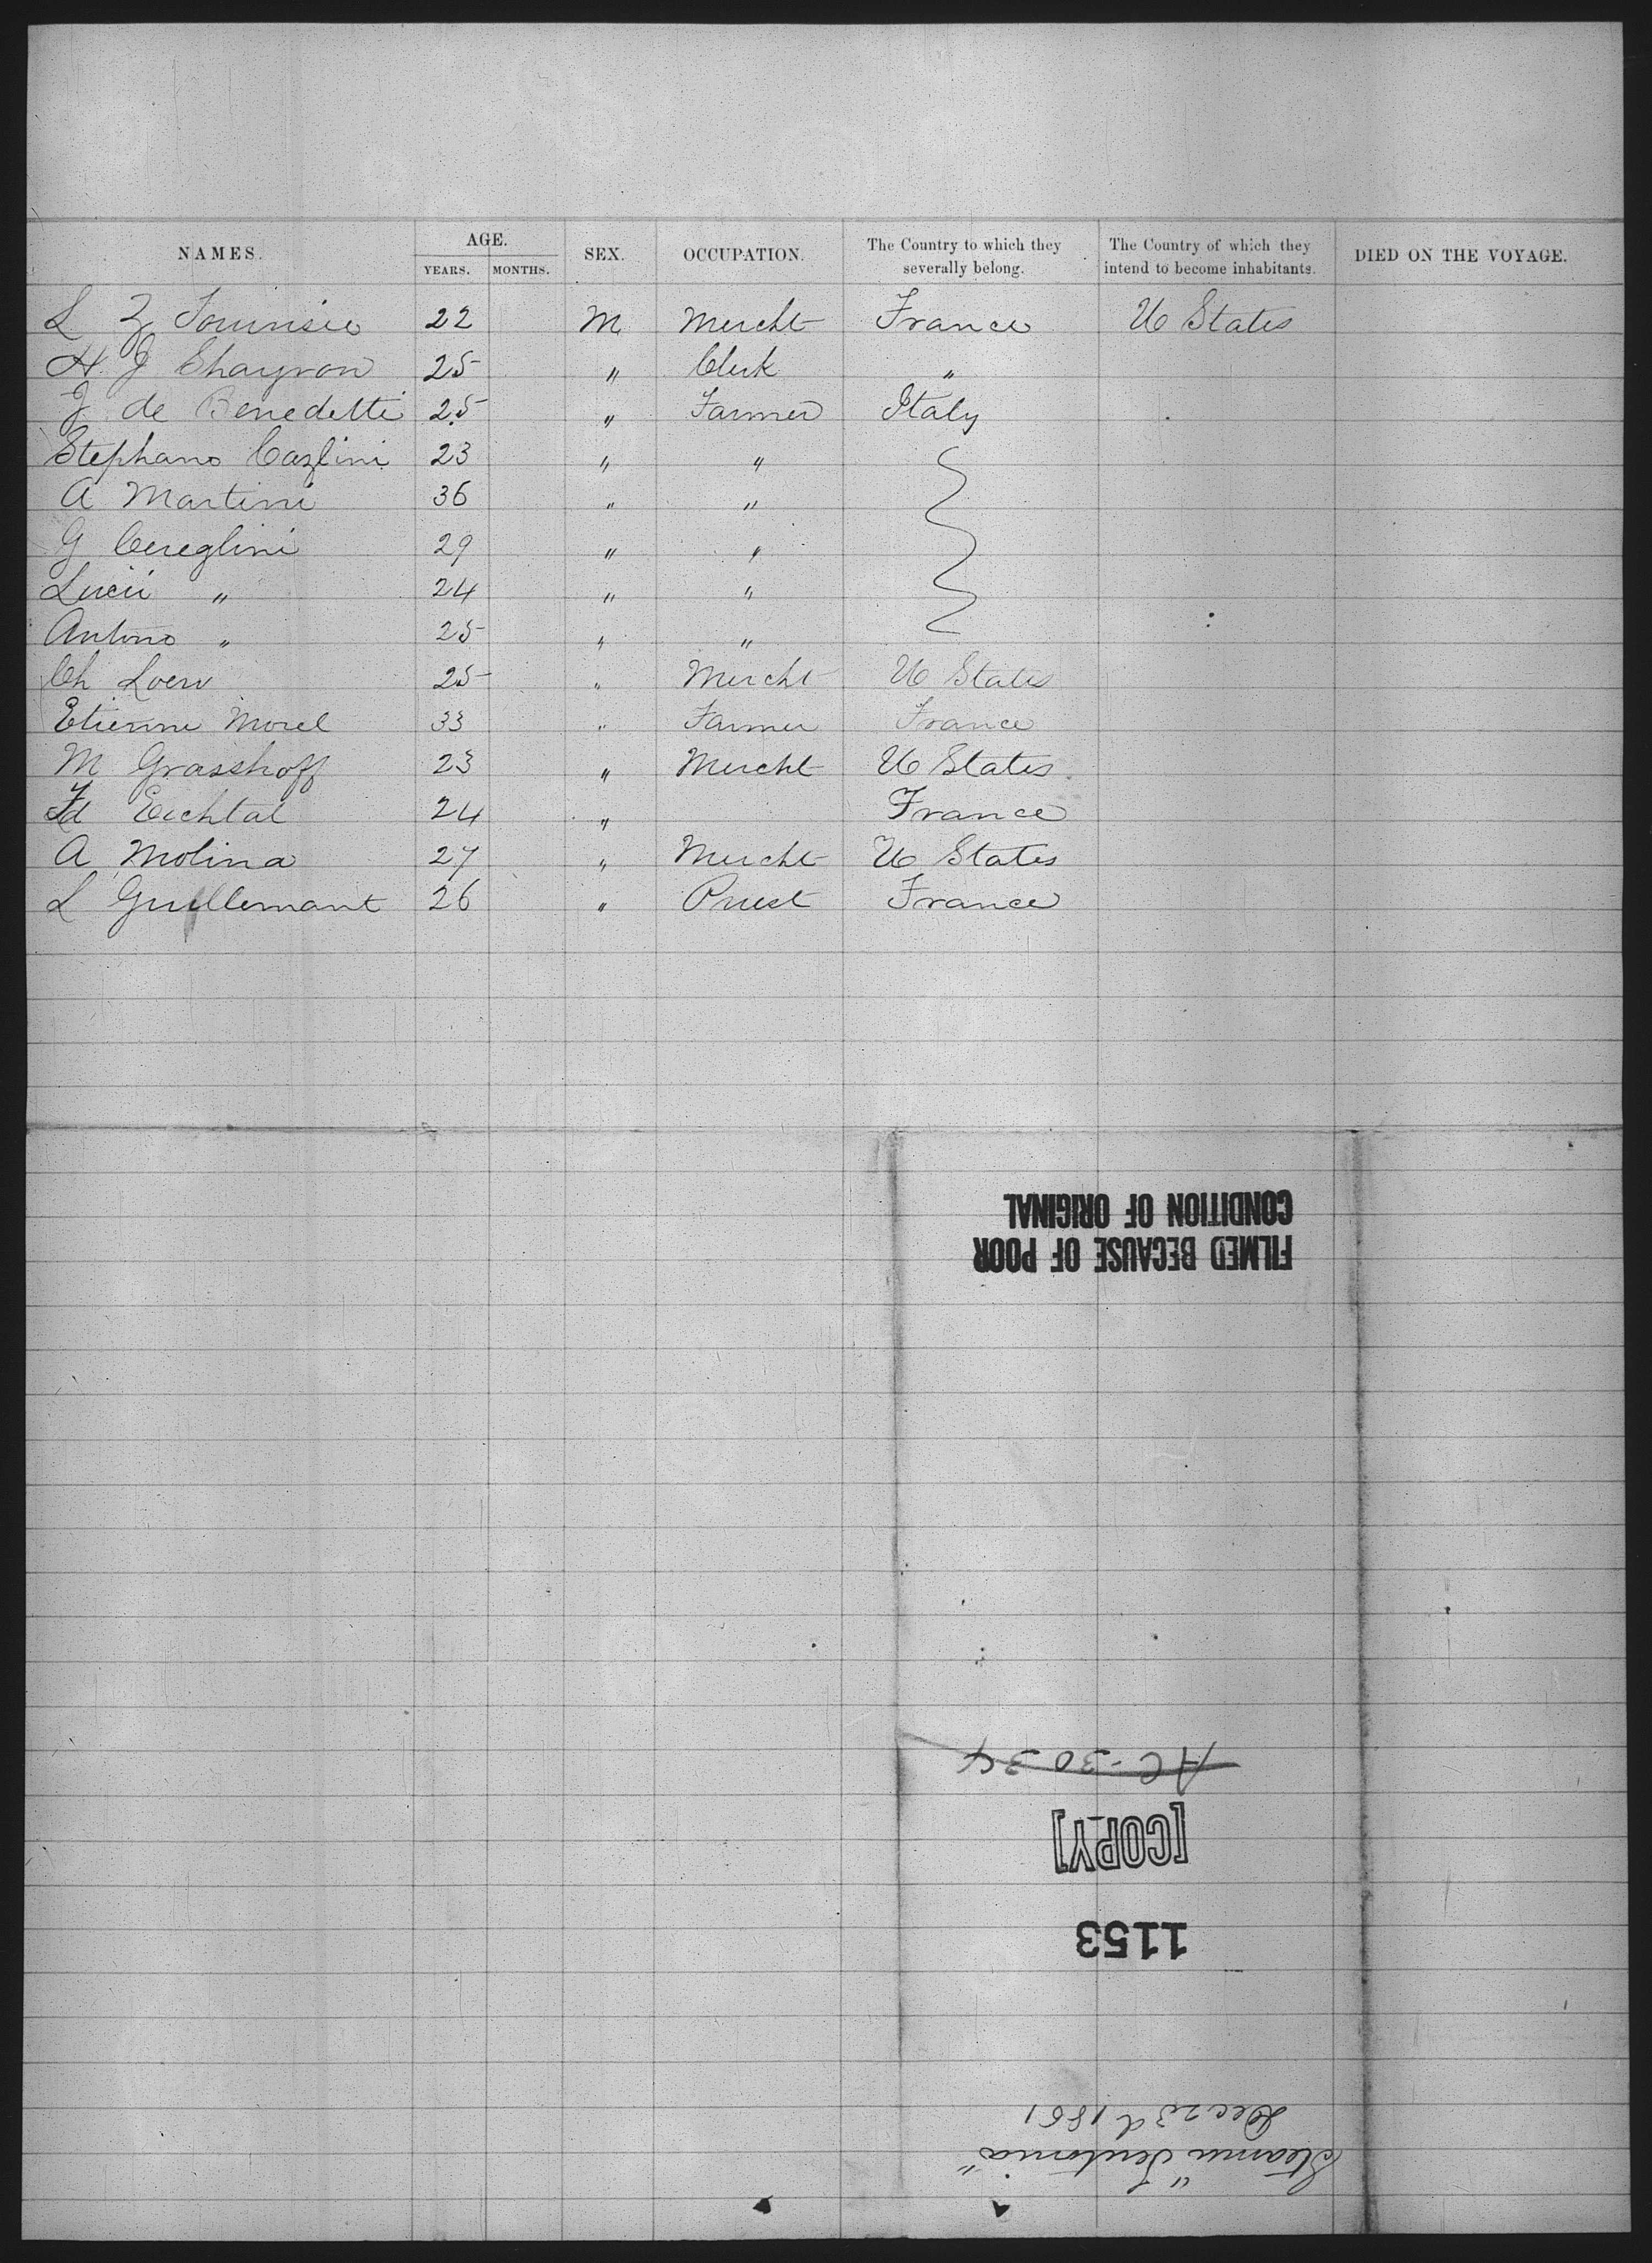 NAMES. AGE. SEX. OCCUPATION. The Country to which they severally belong. The Country of which they intend to become inhabitants. DIED ON THE VOYAGE.
YEARS. MONTHS.
L 22 M Mercht France U States
H. J Chayron 25 " Clerk "
J de Benedetti 25 " Farmer Italy
Stephano 23 " "
A Martini 36 " "
G Cereglini 29 " "
" 24 " "
Antino " 25 " "
Ch Loew 25 " Mercht U States
Etienne Morel 33 " Farmer France
M Grasshoff 23 " Mercht U States
Fd Eichtal 24 " France
A Molina 27 " Mercht U States
L Guillemant 26 " Priest France
FILMED BECAUSE OF POOR
CONDITION OF ORIGINAL
AC-3034
[COPY]
1153
Steamer "Teutonia"
Dec 23d 1861